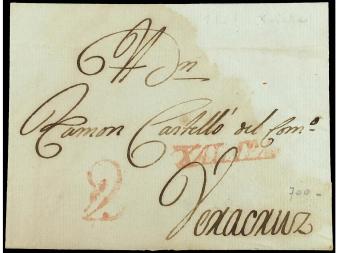 A Dn
Ramon Castelló del Com.o
XALAPA
2
Veracruz
700-